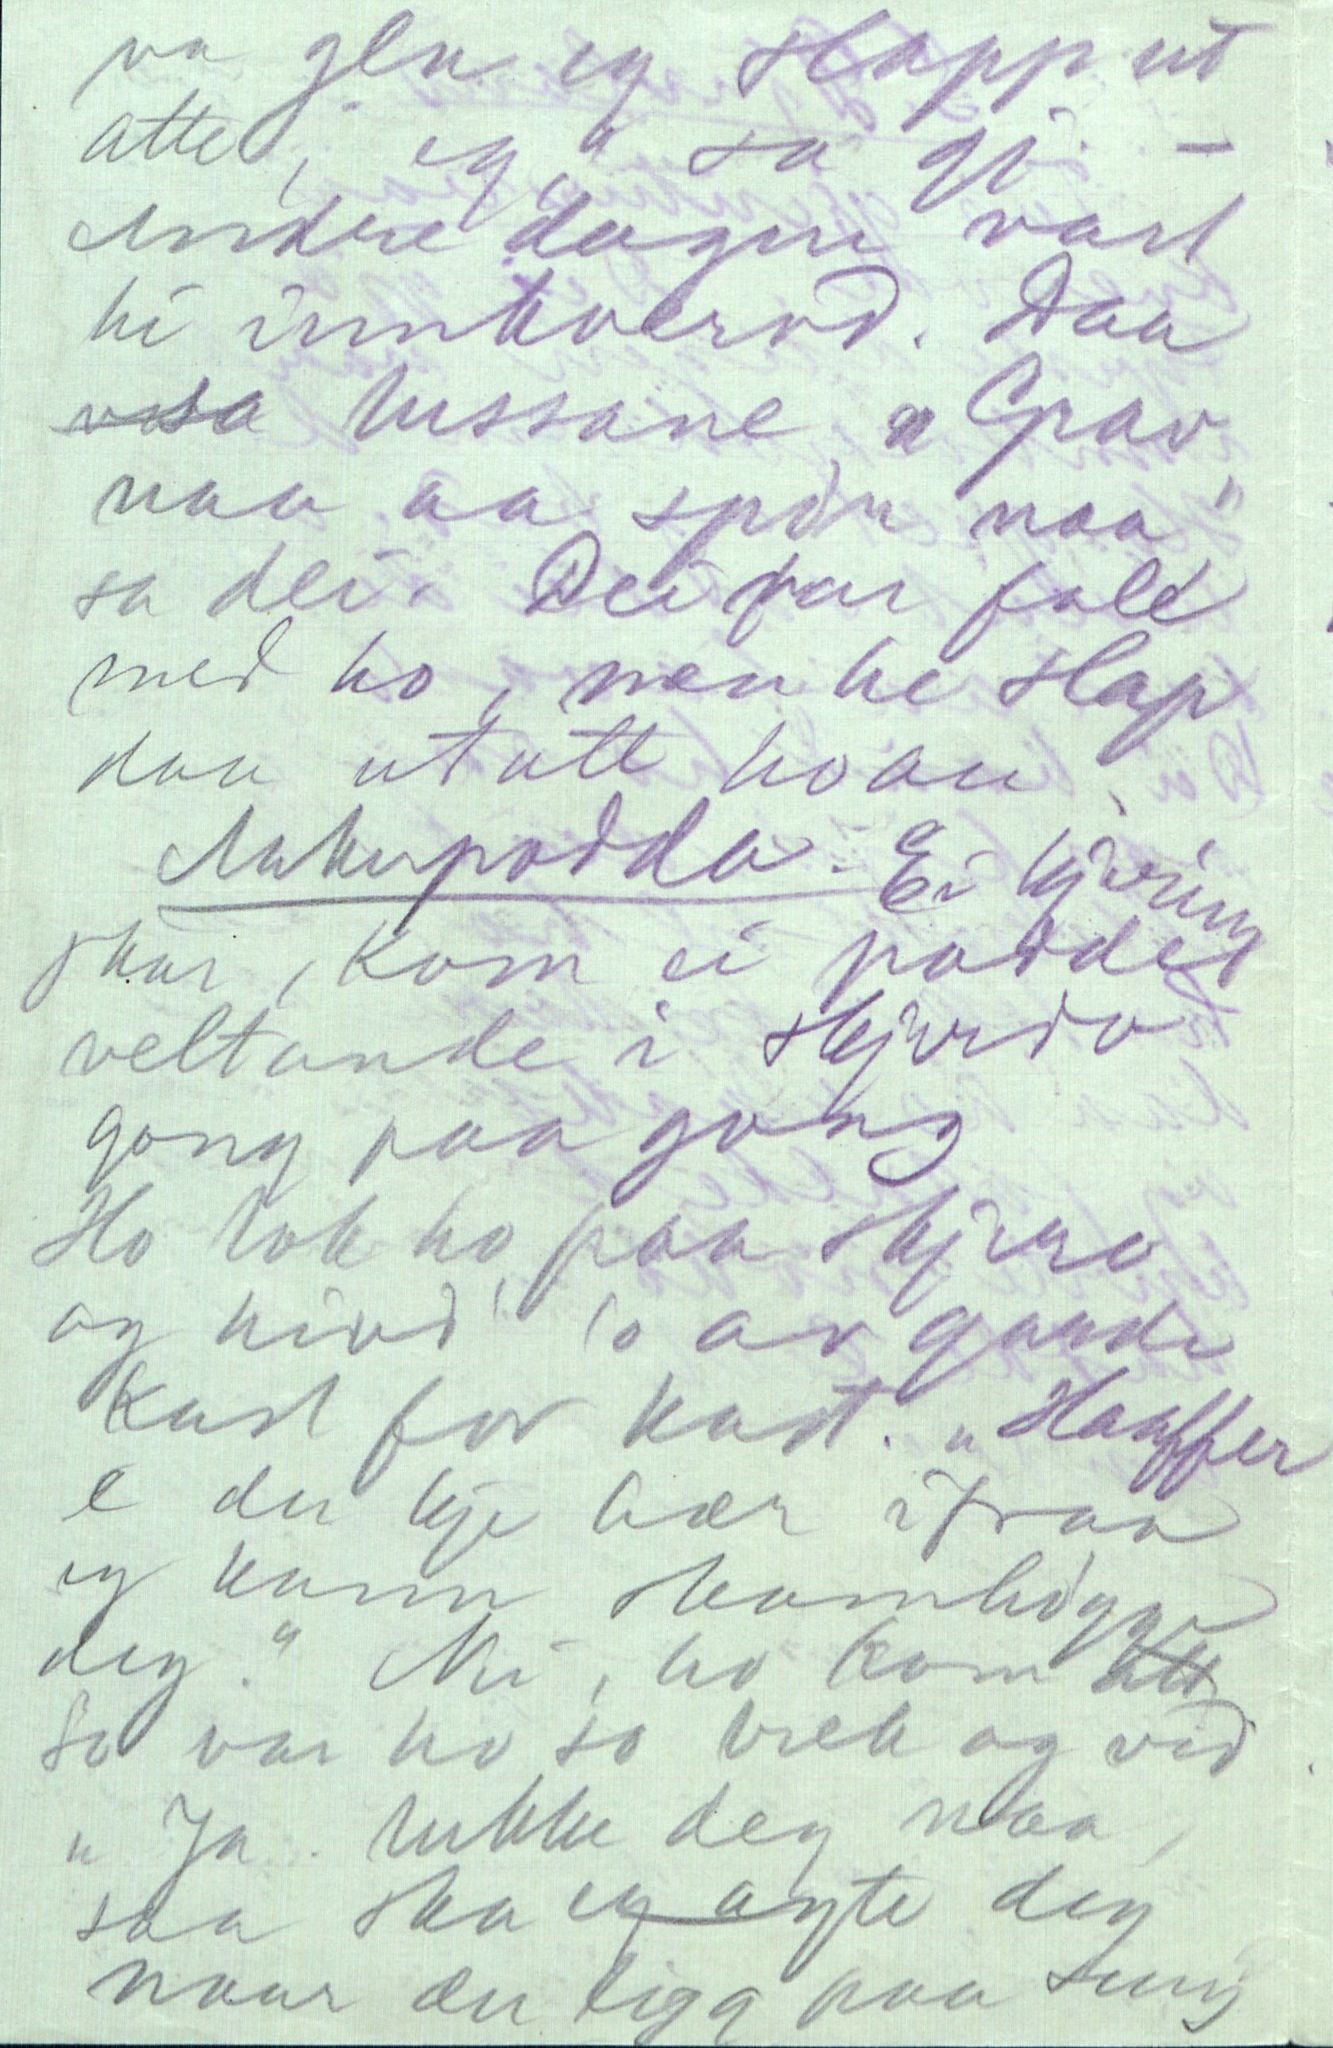 va gla eg slapp ut
atte, eg" sa gj –
Andre dagen vart
hi innkvervd. Daa
sa tussane „Grav
naa aa spön naa"
sa dei. Dei for fole
med ho, men he slap
daa ut att hoau.
Aakerpodda. Ei kjæring
skar, kom ei podde
veltande i skjurdo
gong paa gong
Ho tok ho paa skjuro
og hivd' 'o av garde
kast for kast. „Haaffer
e du kje hær ifraa
eg kann skamhögge
deg." Nei, ho kom att
So var ho so breh og vid.
„Ja. lukke deg naa,
saa ska eg agte deg
naar du ligg paa seng